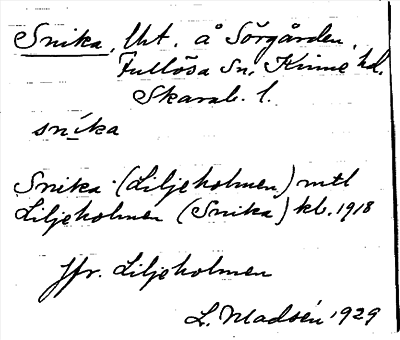 Snika, lht. å Sörgården,
Fullösa Sn, Kinne hd.
Skarab. l.
snika
Snika (Liljeholmen) mtl
Liljeholmen (Snika) kb. 1918
Jfr. Liljeholmen
L. Madsén 1929